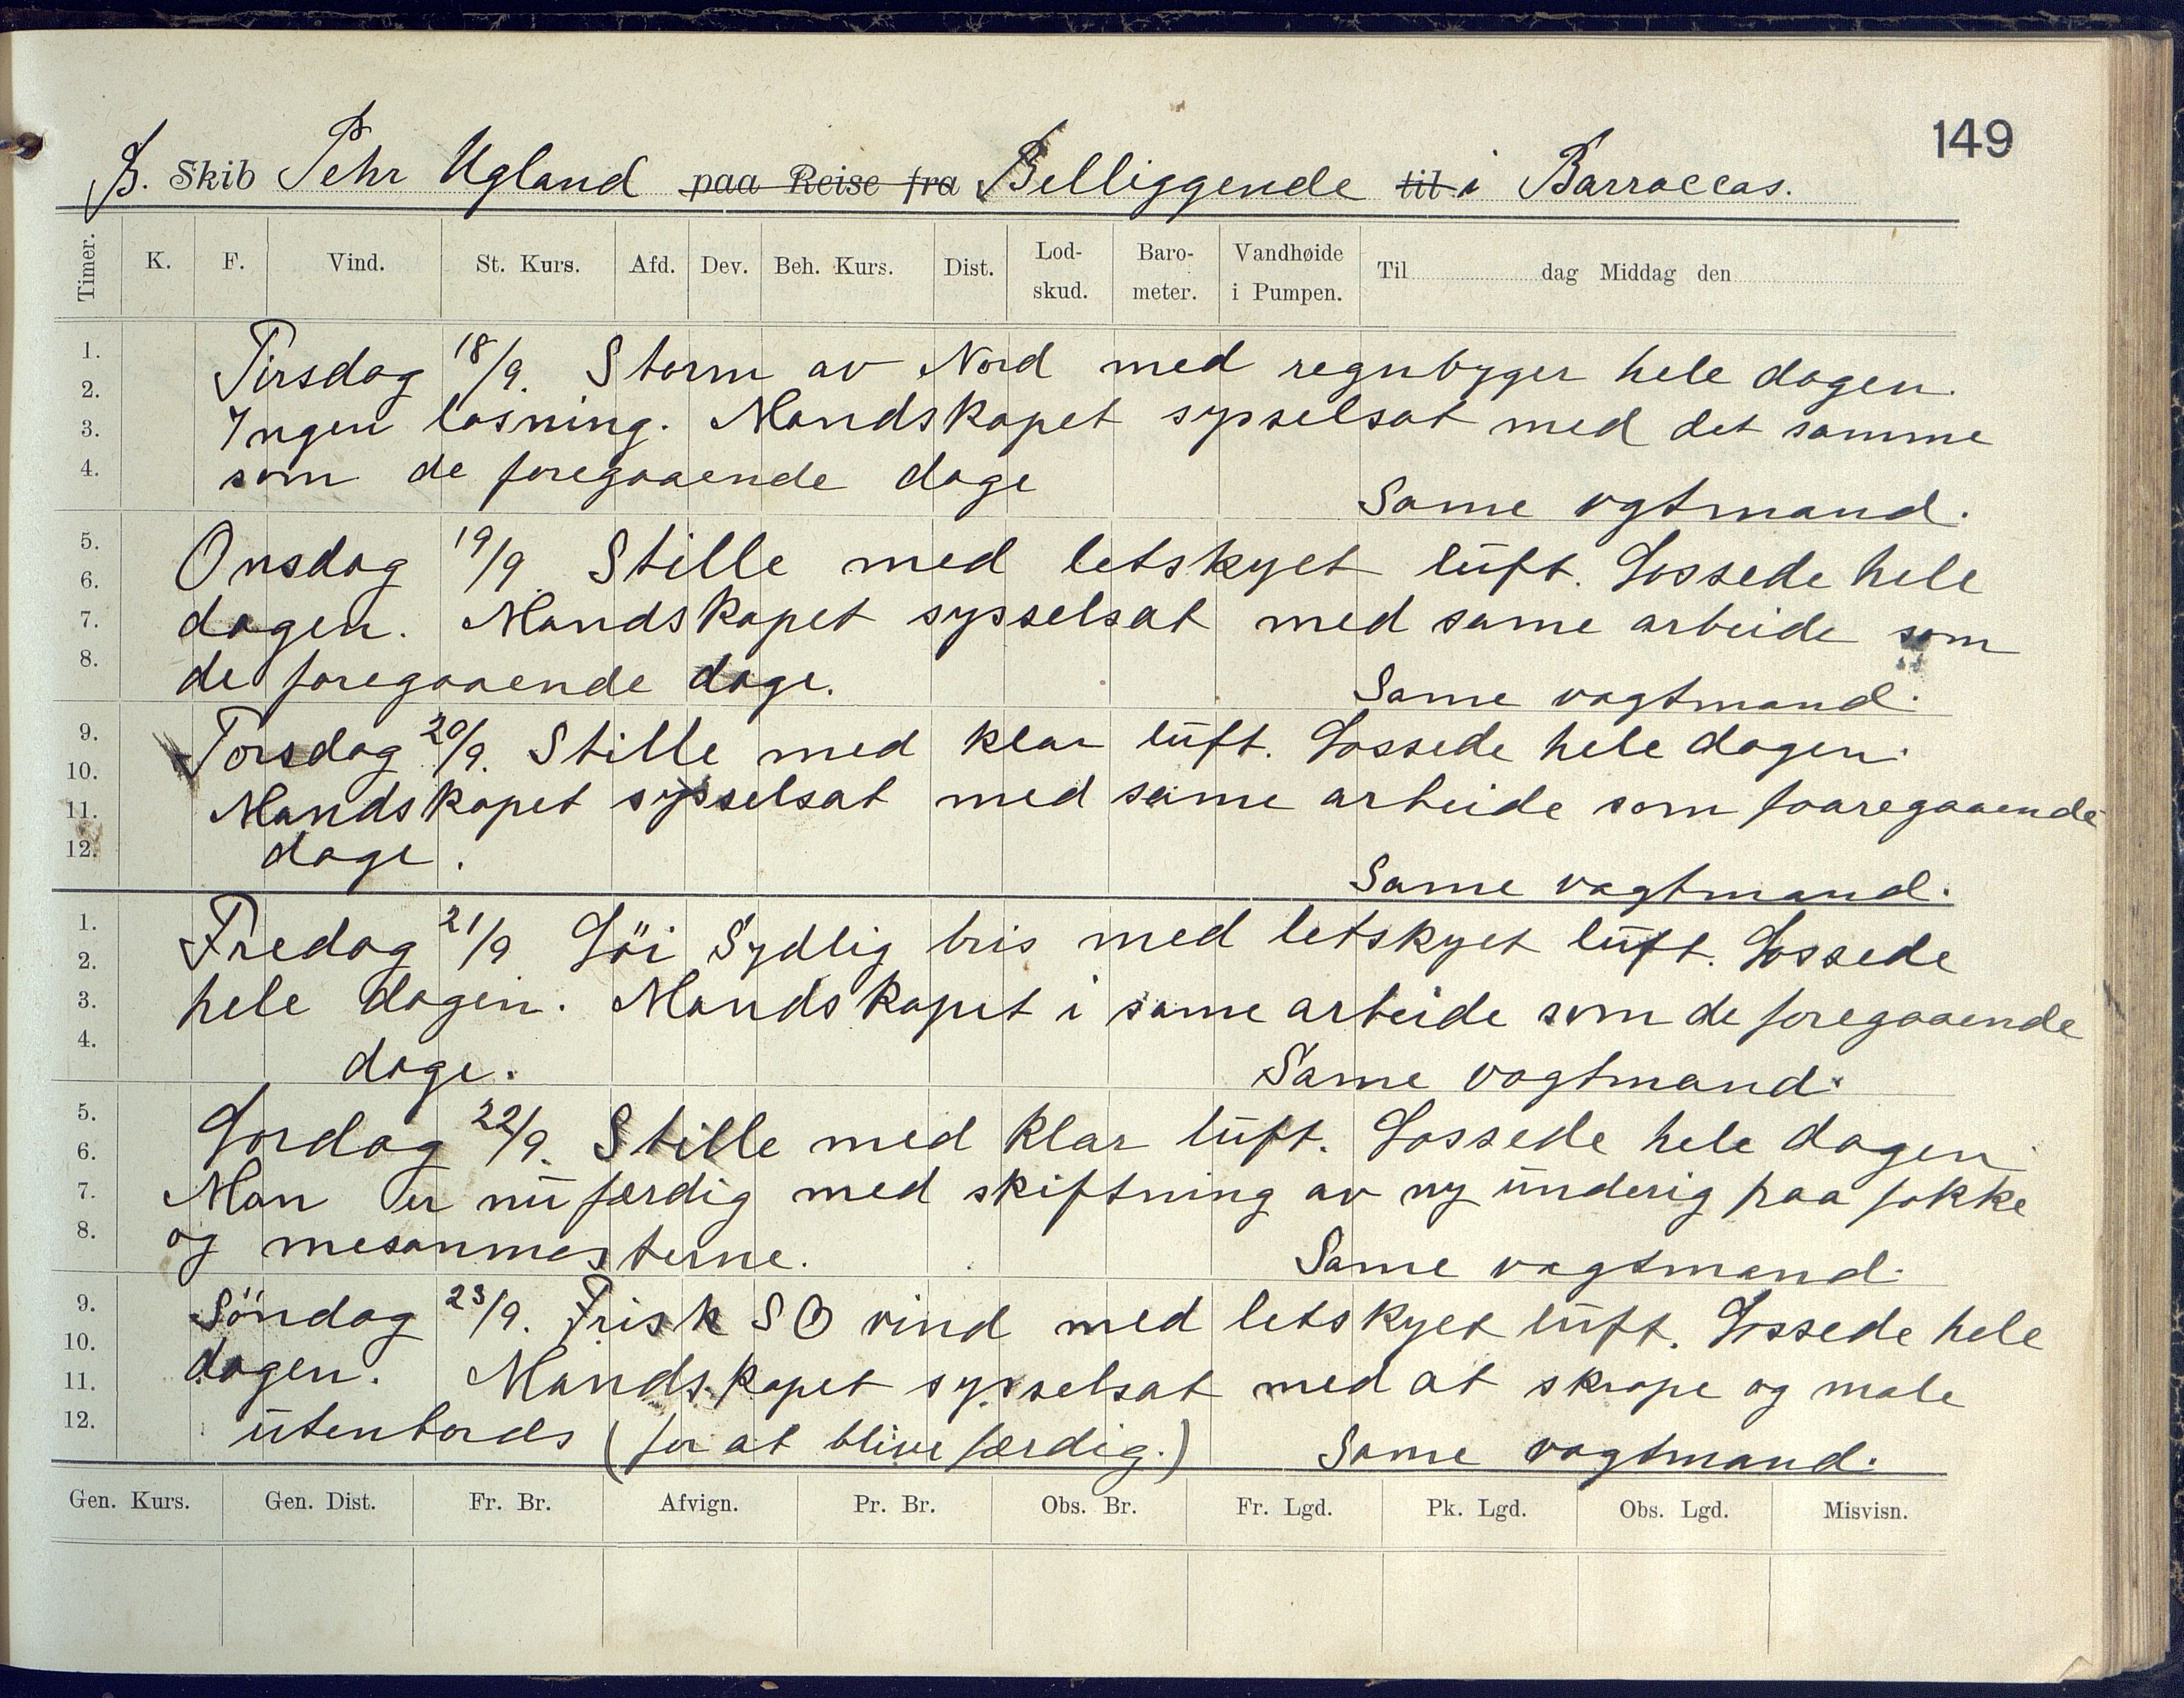 149
B. Skib Pehr Ugland paa Reise fra Belliggende til i Barraccas.
Timer. K. F. Vind. St. Kurs. Afd. Dev. Beh. Kurs. Dist. Lod-skud. Baro-meter. Vandhøide i Pumpen. Til dag Middag den
1.
2.
3.
4.
Tirsdag 18/9. Storm av Nord med regnbyger hele dagen.
Ingen losning. Mandskapet sysselsat med det samme
som de foregaaende dage
Same vgtmand.
5.
6.
7.
8.
Onsdag 19/9. Stille med letskyet luft. Lossede hele
dagen. Mandskapet sysselsat med same arbeide som
de foregaaende dage.
Same vagtmand.
9.
10.
11.
12.
Torsdag 20/9. Stille med klar luft. Lossede hele dagen.
Mandskapet sysselsat med same arbeide som foaregaaende
dage.
Same vagtmand.
1.
2.
3.
4.
Fredag 21/9 Löi Sydlig bris med letskyet luft. Lossede
hele dagen. Mandskapet i same arbeide som de foregaaende
dage.
Same vagtmand.
5.
6.
7.
8.
Lordag 22/9. Stille med klar luft. Lossede hele dagen
Man er nu færdig med skiftning av ny underig paa fokke
og mesanmasterne.
Same vagtmand.
9.
10.
11.
12.
Söndag 23/9. Frisk SO vind med letskyet luft. Lossede hele
dagen. Mandskapet sysselsat med at skrape og male
utenbords (for at blive færdig.)
Same vagtmand.
Gen. Kurs. Gen. Dist. Fr. Br. Afvign. Pr. Br. Obs. Br. Fr. Lgd. Pk. Lgd. Obs. Lgd. Misvisn.